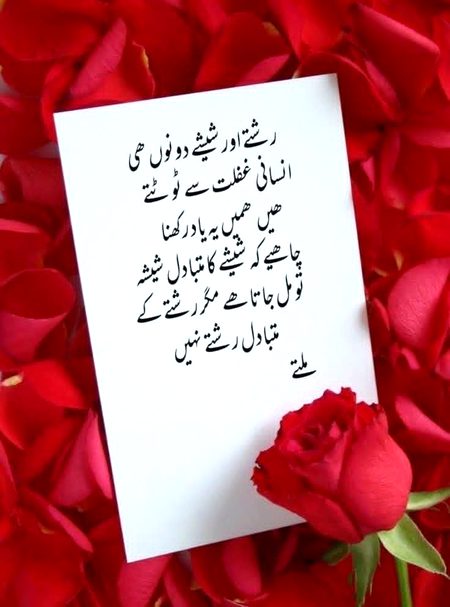 رشتے اور شیشے دونوں ھی
انسانی غفلت سے ٹوٹتے
ھیں ھمیں یہ یاد رکھنا
چاھیے کہ شیشے کا متبادل شیشہ
تو مل جاتا ھے مگر رشتے کے
متبادل رشتے نہیں
ملتے